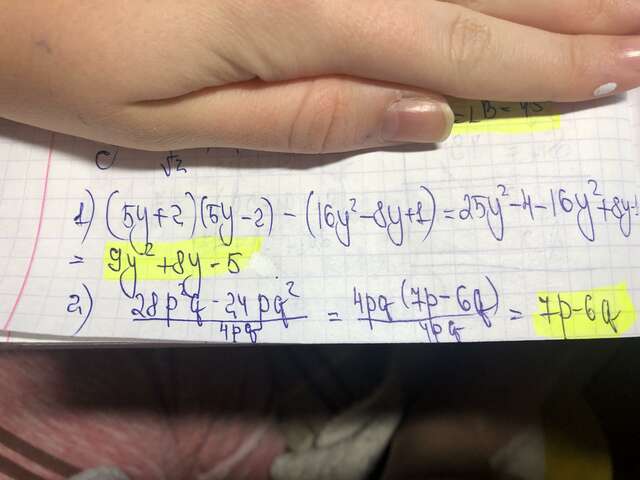 =∠B=45
c) √2
1) (5y+2)(5y-2)-(16y²-8y+1)=25y²-4-16y²+8y-1
= 9y²+8y-5
2) 28p²q-24pq²/4pq = 4pq(7p-6q)/4pq = 7p-6q